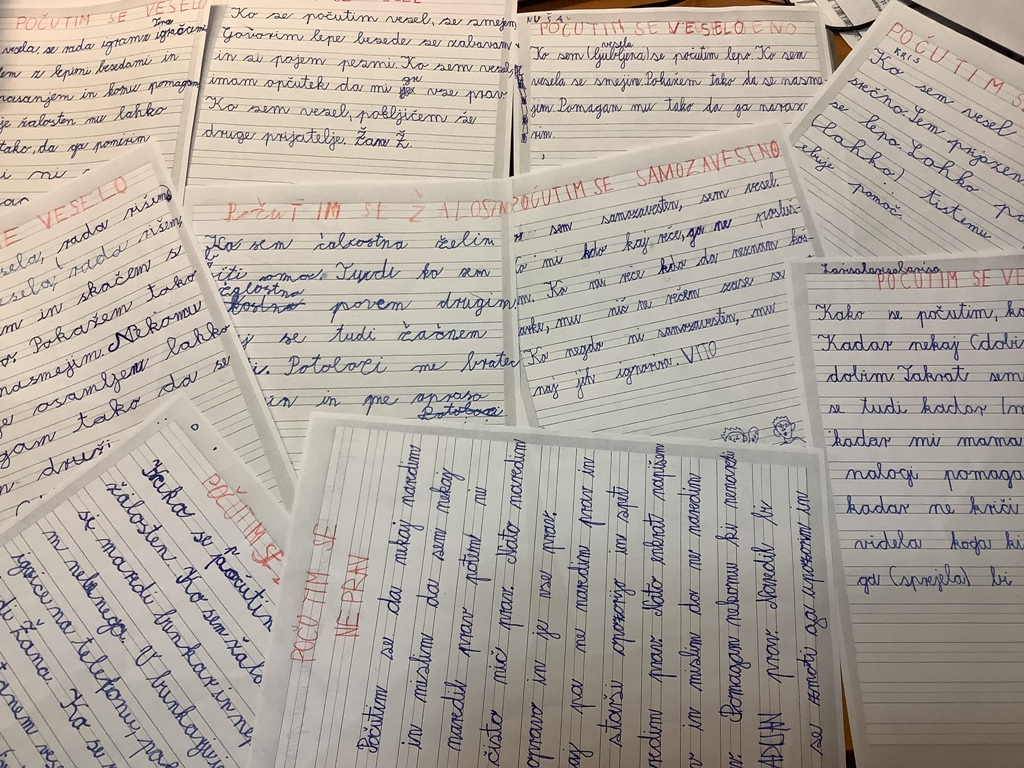 POČUTIM SE VESELO
vesela, se rada igram z igračami
z lepimi besedami in
nasanjem in komu pomagam
je žalosten mu lahko
tako, da ga pomirim
Ko se počutim vesel, se smejem
Govorim lepe besede se zabavam
in si pojem pesmi. Ko sem vesel,
imam opčutek da mi gre vse prav
Ko sem vesel, pokljičem še
druge prijatelje. Žan Ž.
NUŠA
POČUTIM SE VESELO ENO
Ko sem (ljubljena) vesela se počutim lepo. Ko sem
vesela se smejim. Pokažem tako da se nasma
jem. Pomagam mu tako da ga
rim.
POČUTIM S
KRIS
Ko sem vesel
srečno. Sem prijazen
se lepo. Lahko po
(lahko) tistemu
ebuje pomoč.
E VESELO
sela, rada rišem
esela, rada rišem,
m in skačem s
Pokažem tako
nasmejim. Nekomu
je osamljen lahko
gam tako da se
druži
POČUTIM SE ŽALOSTN
Ko sem žalostna želim
biti sama. Tujedi ko sem
žalostna povem drugim
j se tudi začnem
i. Potolaži me bratec
en in me vpraša
POČUTIM SE SAMOZAVESTNO
sem samozavesten, sem vesel.
Ko mi kdo kaj reče, ga ne posluš-
m. Ko mi reče kdo da neznam koš-
arke, mu nič ne rečem
Ko negdo ni samozavesten, mu
naj jih ignorira. VITO
POČUTIM SE VE
Kako se počutim, ko
Kadar nekaj (dobi
dobim. Takrat sem
se tudi kadar (m
kadar mi mama
nalogi pomaga
kadar ne kriči
videla koga ki
ga (sprejela) bi
POČUTIM SE
Kako se počutim
žalosten. Ko sem žalo
si naredi bunkar in nex
m nekega. V bunkarju
igrice na telefonu, pa
di Žana. Ko
POČUTIM SE
NE PRAV
Počutim se da nekaj naredim
in mislim da sem nekaj
naredil prav potem ni
čisto nič prav. Nato naredim
opravo in je vse prav.
aj pa ne naredim prav in
starši opozorijo in spet
redim prav. Nato enkrat napišem
r in mislim da ne naredim
r. Pomagam nekomu ki nenaredi
prav. Naredil bi
se zmoti ga upozorim in